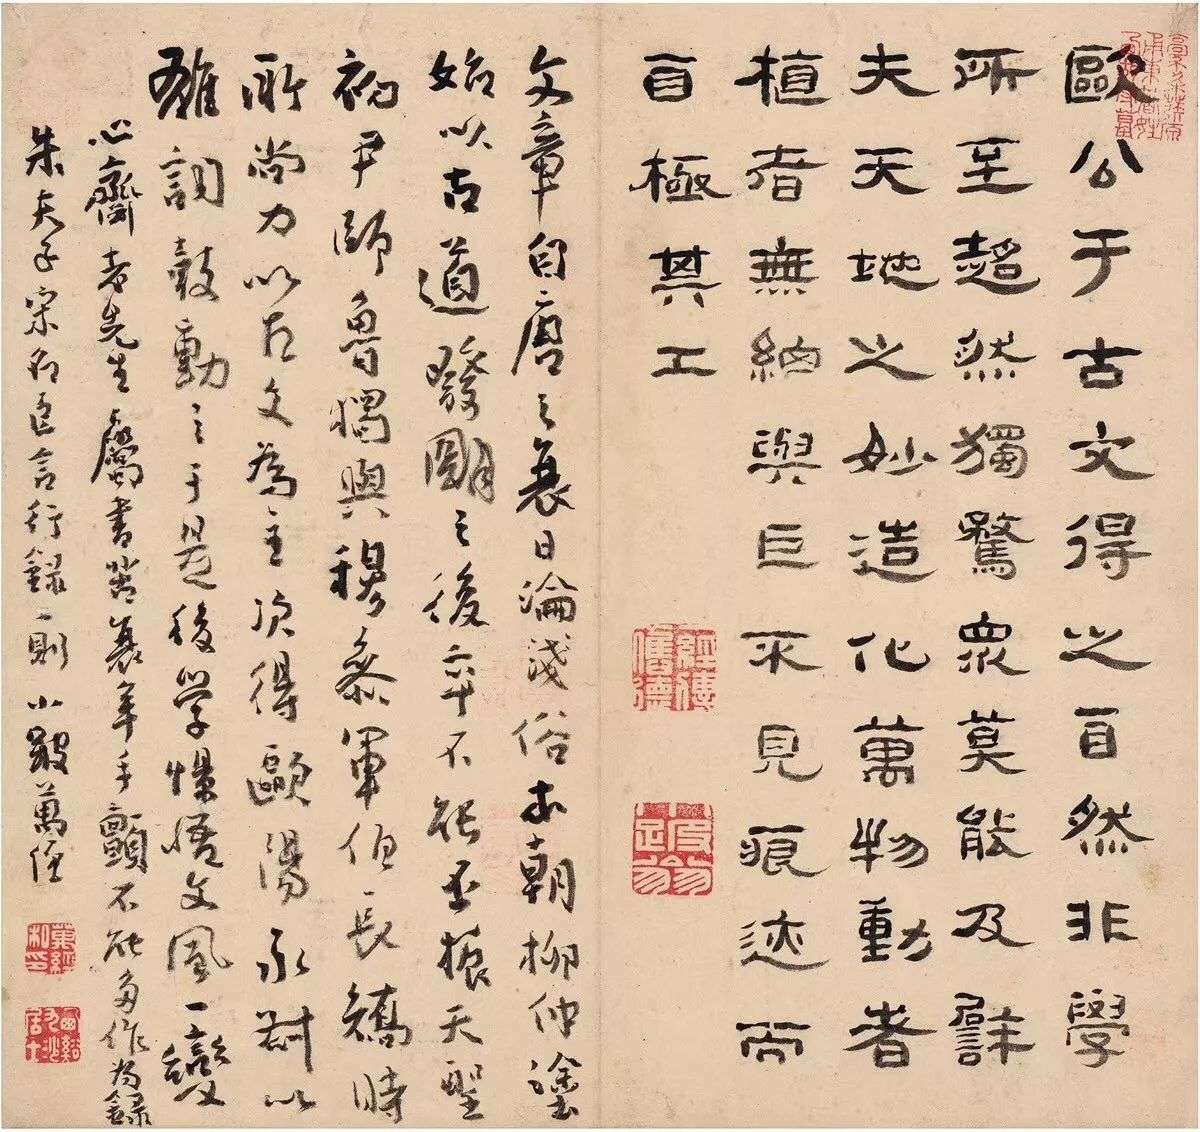 歐公于古文得之自然非學
所至超然獨驁眾莫能及辟
夫天地之妙造化萬物動者
植者無細與巨不見痕迹而
自極其工
文章自唐之衰日淪淺俗本朝柳仲塗
始以古道發明之後卒不能丕振天聖
初尹師魯獨與穆參軍伯長矯時
所尚力以古文為主次得歐陽永叔以
雄詞鼓動之于是後學慢悟文風一變
心齋老先生屬書茲衰年手顫不能多作為錄
朱夫子宋名臣言行錄一則小跛萬經